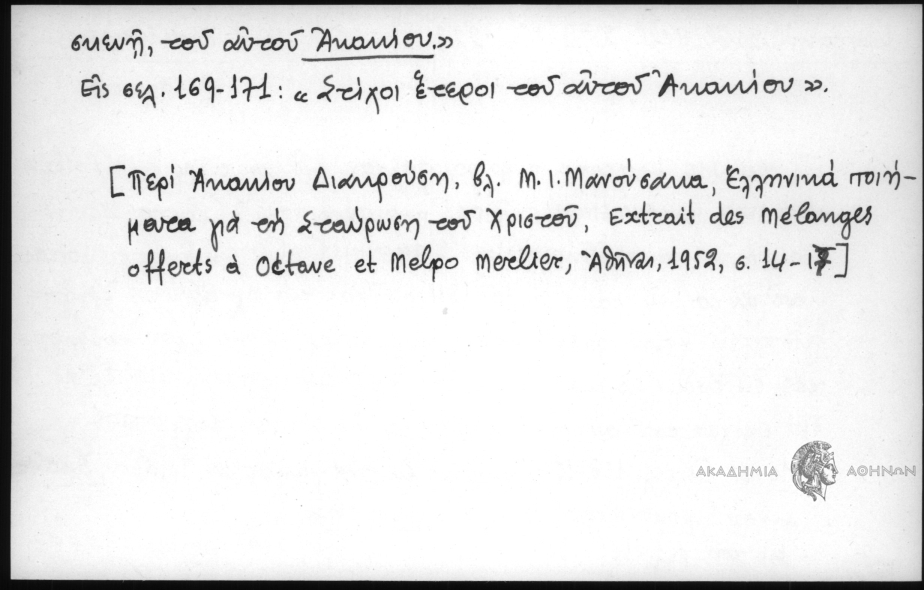 σκευῇ, τοῦ αὐτοῦ Ἀκακίου.»
Εἰς σελ. 169-171: « Στίχοι ἕτεροι τοῦ αὐτοῦ Ἀκακίου ».
[Περί Ἀκακίου Διακρούση, βλ. Μ. Ι. Μανούσακα, Ἑλληνικά ποιή-
ματα γιά τή Σταύρωση τοῦ Χριστοῦ, Extrait des Mélanges
offerts à Octave et Melpo Merlier, Ἀθῆναι, 1952, σ. 14-17]
ΑΚΑΔΗΜΙΑ ΑΘΗΝΩΝ